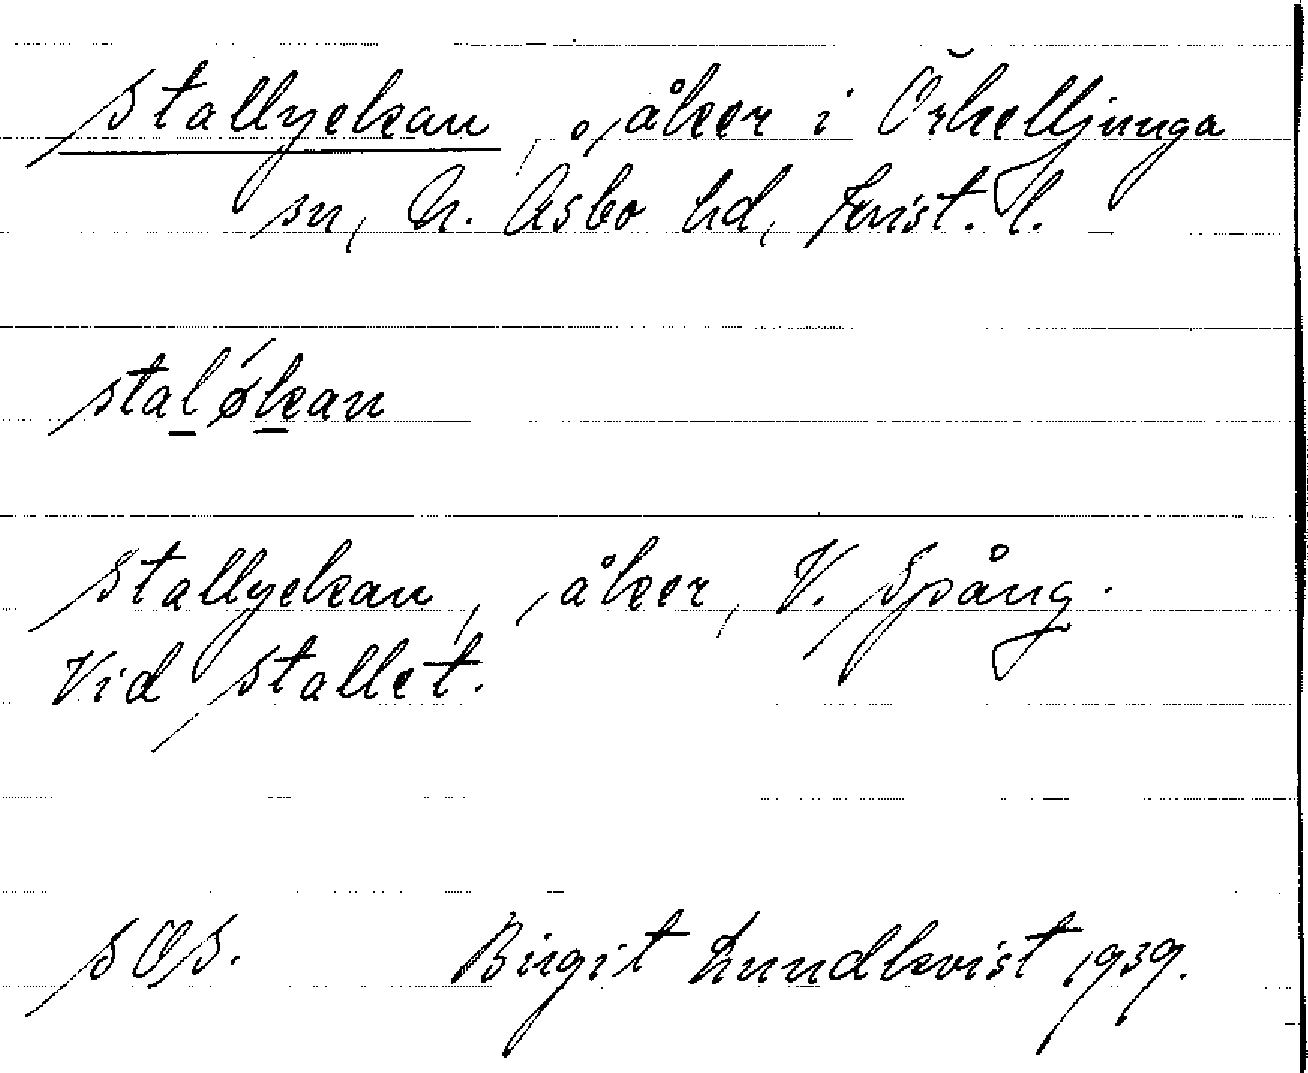 Stallyckan, åker i Örkelljunga
sn, N. Åsbo hd, Krist. l.
staløkan
Stallyckan, åker, V. Spång.
Vid stallet.
SOS. Birgit Lundkvist 1939.